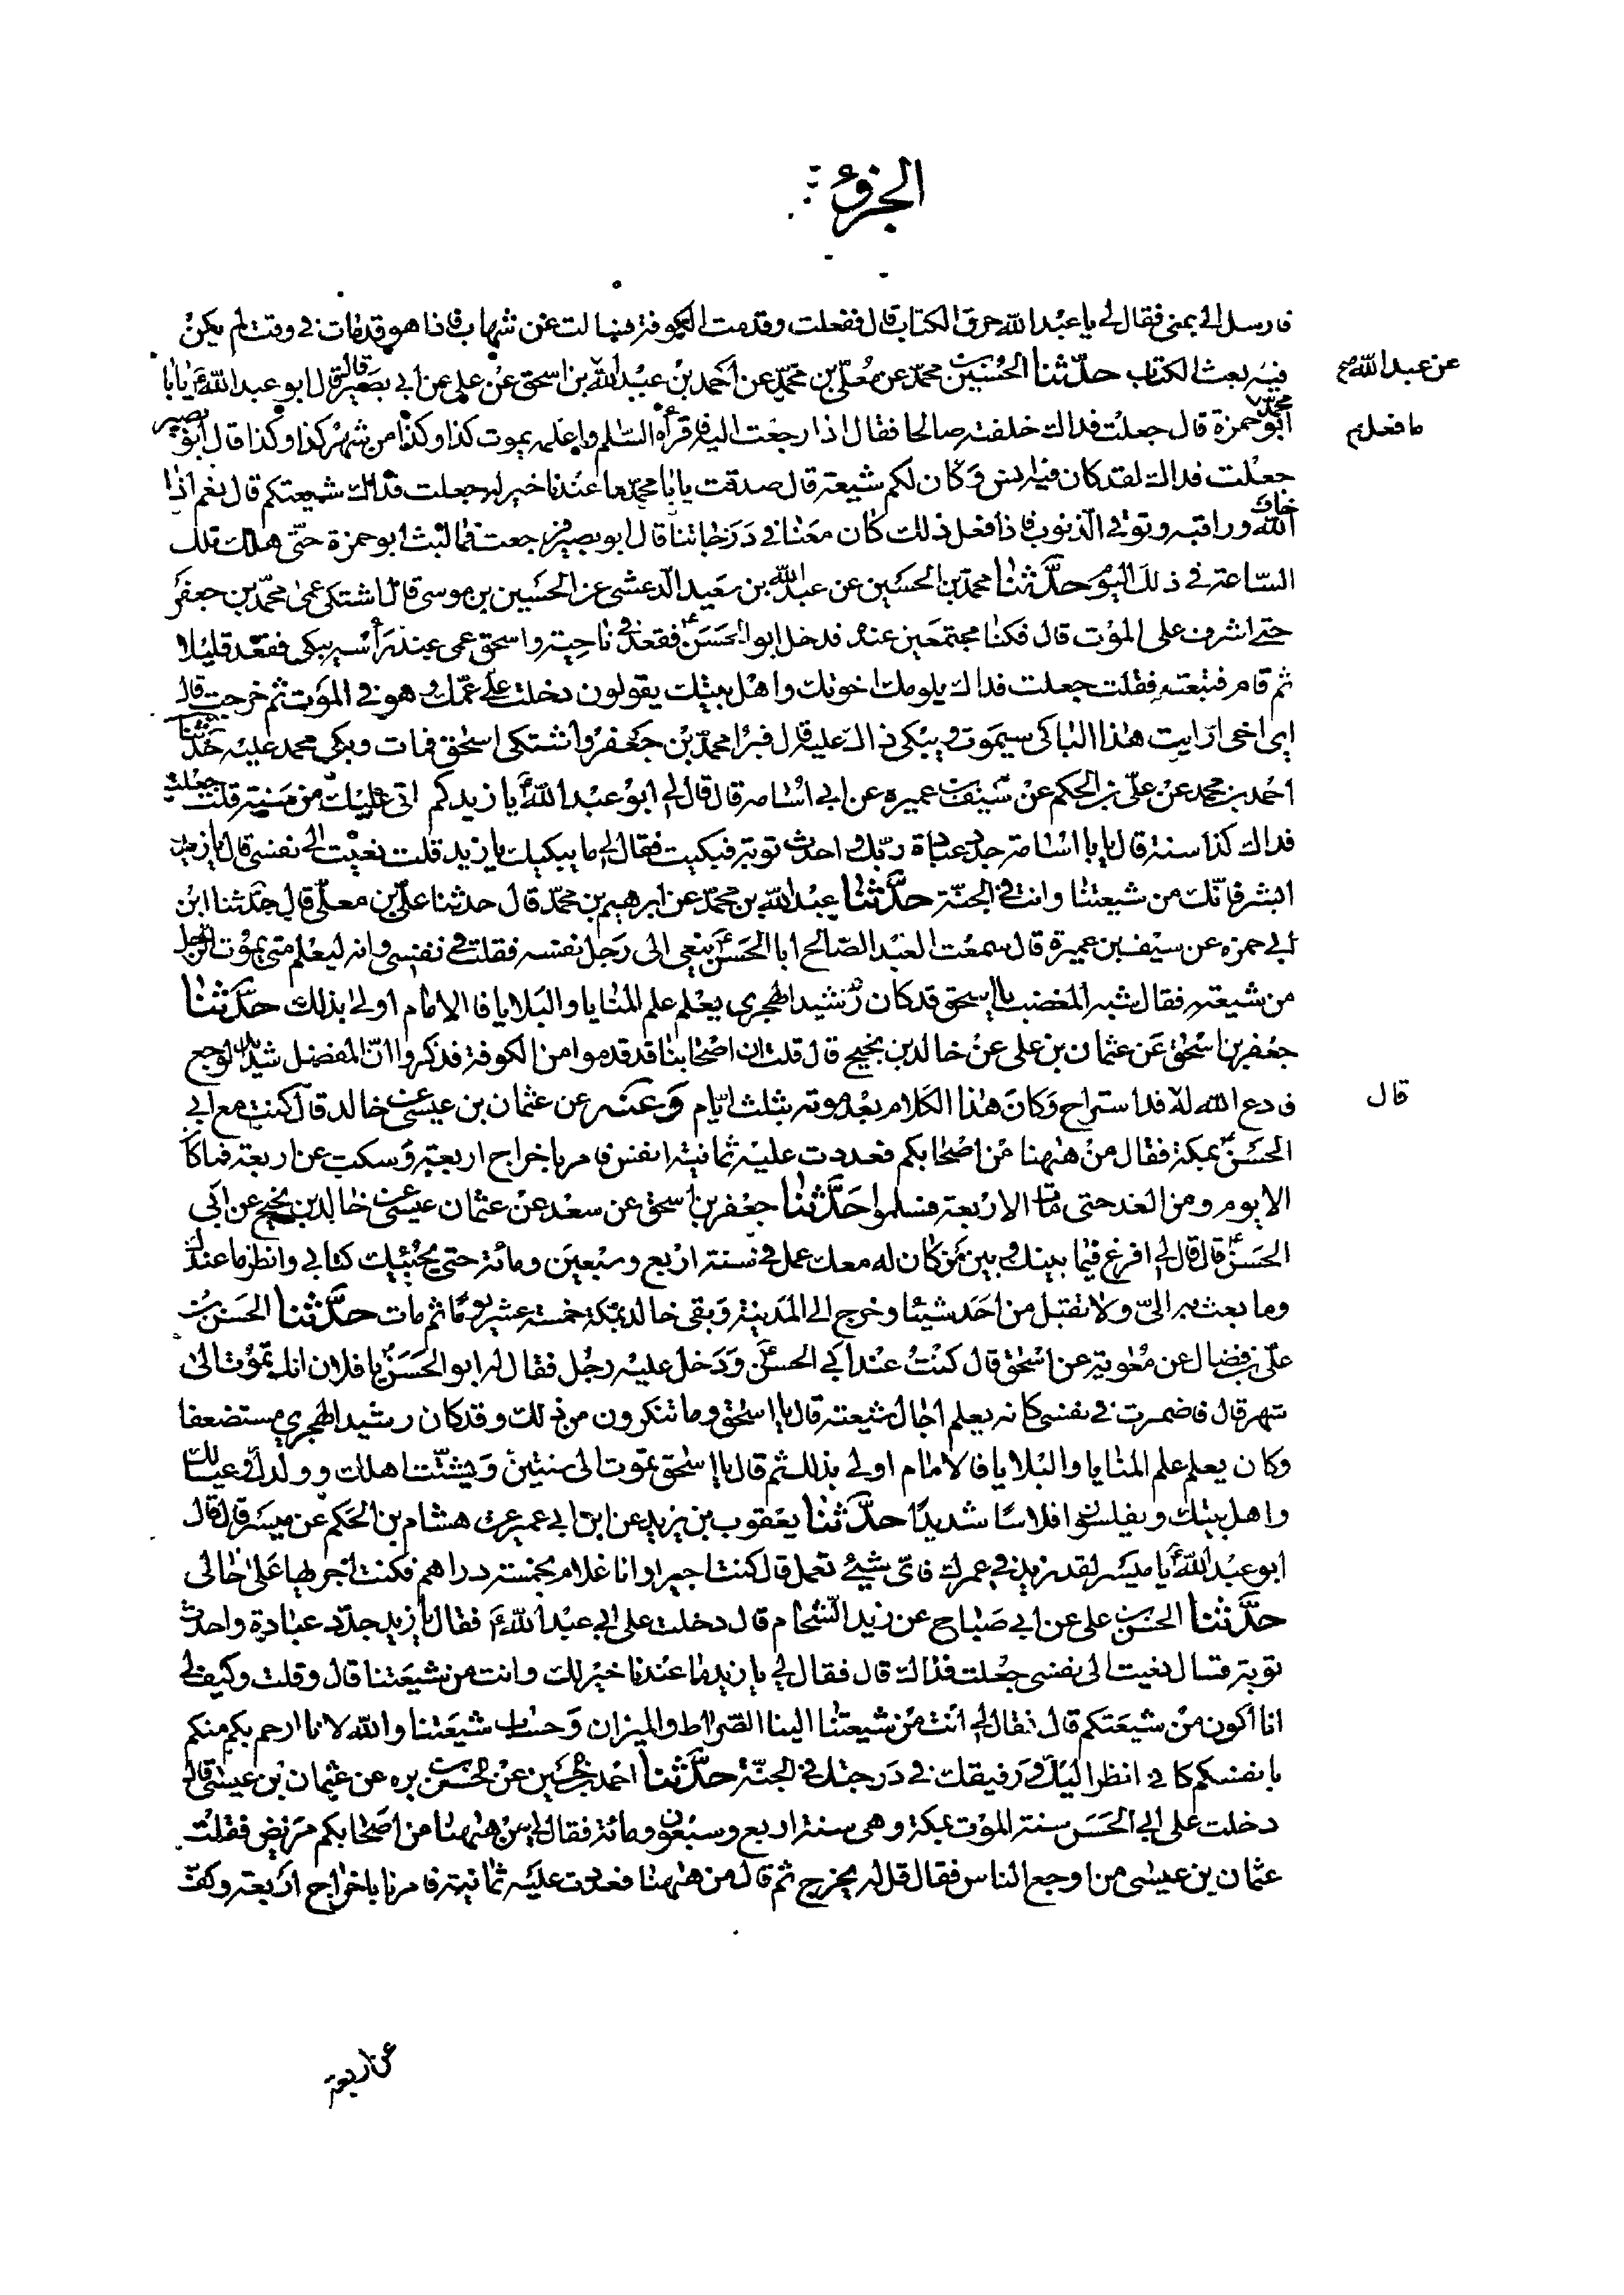 الجزؤ
فارسل الى بمنى فقال لى يا عبد الله حرق الكتاب قال ففعلت وقدمت الكوفة فسالت عن شهاب فاذا هو قد مات فى وقت لم يكن
فيه بعث الكتاب حدثنا الحسين بن محمد عن معلى بن محمد عن احمد بن محمد بن عبد الله بن اسحق عن على عن ابى بصير قال قال ابو عبد الله ع يا با
عن عبد الله
محمد ما فعل ابو حمزة قال جعلت فداك خلفته صالحا فقال اذا رجعت اليه فاقرأه السلم واعلمه يموت كذا وكذا من شهر كذا وكذا قال ابو بصير
ما فعل
جعلت فداك لقد كان فيه انس وكان لكم شيعة قال صدقت يا با محمد ما عندنا خير له جعلت فداك شيعتكم قال نعم اذا
خاف الله وراقبه وتوقى الذنوب فاذا فعل ذلك كان معنا فى درجاتنا قال ابو بصير فرجعت فما لبث ابو حمزة حتى هلك تلك
الساعة فى ذلك اليوم حدثنا محمد بن الحسين عن عبد الله بن سعيد الدغشى عن الحسين بن موسى قال اشتكى عمى محمد بن جعفر
حتى اشرف على الموت قال فكنا مجتمعين عنده فدخل ابو الحسن ع فقعد فى ناحية واسحق عمى عند رأسه يبكى فقعد قليلا
ثم قام فتبعته فقلت جعلت فداك يلومك اخوتك واهل بيتك يقولون دخلت على عمك وهو فى الموت ثم خرجت قال
اى اخى ارايت هذا الباكى سيموت ويبكى ذاك عليه قال فبرا محمد بن جعفر واشتكى اسحق فمات وبكى محمد عليه حدثنا
احمد بن محمد عن على بن الحكم عن سيف بن عميرة عن ابى اسامة قال قال لى ابو عبد الله ع يا زيد كم اتى عليك من سنة قلت جعلت
فداك كذا سنة قال يا با اسامة جدد عبادة ربك واحدث توبة فبكيت فقال لى ما يبكيك يا زيد قلت نعيت الى نفسى قال يا زيد
ابشر فانك من شيعتنا وانت فى الجنة حدثنا عبد الله بن محمد عن ابرهيم بن محمد قال حدثنا على بن معلى قال حدثنا ابن
ابى حمزه عن سيف بن عميرة قال سمعت العبد الصالح ابا الحسن ع ينعى الى رجل نفسه فقلت فى نفسى وانه ليعلم متى يموت الرجل
من شيعته فقال شبه المغضب يا اسحق قد كان رشيد الهجرى يعلم علم المنايا والبلايا فالامام اولى بذلك حدثنا
جعفر بن اسحق عن عثمان بن على عن خالد بن نجيح قال قلت ان اصحابنا قد قدموا من الكوفة فذكروا ان المفضل شديد الوجع
فادع الله له قال قد استراح وكان هذا الكلام بعد موته بثلث ايام وعنه عن عثمان بن عيسى عن خالد قال كنت مع ابى
قال
الحسن ع بمكة فقال من ههنا من اصحابكم فعددت عليه ثمانية انفس فامر باخراج اربعة وسكت عن اربعة فما كان
الا يوم ومن الغد حتى مات الاربعة فسلموا حدثنا جعفر بن اسحق عن سعد عن عثمان عيسى عن خالد بن نجيح عن ابى
الحسن ع قال قال لى افرغ فيما بينك وبين من كان له معك عمل فى سنة اربع وسبعين ومائة حتى يجيئك كتابى وانظر ما عندك
وما بعث به الى ولا تقبل من احد شيئا وخرج الى المدينة وبقى خالد بمكة خمسة عشر يوما ثم مات حدثنا الحسن بن
على بن فضال عن معوية عن اسحق قال كنت عند ابى الحسن ع ودخل عليه رجل فقال له ابو الحسن ع يا فلان انك تموت الى
شهر قال فاضمرت فى نفسى كانه يعلم اجال شيعته قال يا اسحق وما تنكرون من ذلك وقد كان رشيد الهجرى مستضعفا
وكان يعلم علم المنايا والبلايا فالامام اولى بذلك ثم قال يا اسحق تموت الى سنتين ويشتت اهلك وولدك وعيالك
واهل بيتك ويفلسون افلاسا شديدا حدثنا يعقوب بن يزيد عن ابن ابى عمير عن هشام بن الحكم عن ميسر قال قال
ابو عبد الله ع يا ميسر لقد زيد فى عمرك فاى شيئ تعمل قال كنت اجيرا وانا غلام بخمسة دراهم فكنت اجريها على خالى
حدثنا الحسن بن على عن ابى صباح عن زيد الشحام قال دخلت على ابى عبد الله ع فقال يا زيد جدد عبادة واحدث
توبة قال نعيت الى نفسى جعلت فداك قال فقال لى يا زيد ما عندنا خير لك وانت من شيعتنا قال وقلت وكيف لى
انا اكون من شيعتكم قال فقال لى انت من شيعتنا الينا الصراط والميزان وحساب شيعتنا والله لانا ارحم بكم منكم
بانفسكم كانى انظر اليك ورفيقك فى درجتك فى الجنة حدثنا احمد بن الحسين عن الحسن بن بره عن عثمان بن عيسى قال
دخلت على ابى الحسن سنة الموت بمكة وهى سنة اربع وسبعون ومائة فقال لى من ههنا من اصحابكم مريض فقلت
عثمان بن عيسى من اوجع الناس فقال قل له يخرج ثم قال من ههنا فعددت عليه ثمانية فامرنا باخراج اربعة وكف
عن اربعة